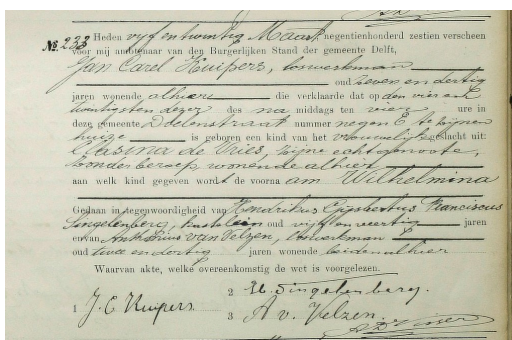 № 233 Heden vijf en twintig Maart negentienhonderd zestien verscheen
voor mij ambtenaar van den Burgerlijken Stand der gemeente Delft,
Jan Carel Kuipers, loswerkman
oud zeven en dertig
jaren wonende alhier die verklaarde dat op den vier en
twintigsten dezer des na middags ten vier ure in
deze gemeente Doelenstraat nummer negen E te zijnen
huize is geboren een kind van het vrouwelijk geslacht uit:
Clasina de Vries, zijne echtgenoote,
zonder beroep, wonende alhier
aan welk kind gegeven wordt de voorna am Wilhelmina
Gedaan in tegenwoordigheid van Hendrikus Gijsbertus Franciscus
Singelenberg, kastelein oud vijf en veertig jaren
en van Antonius van Velzen, loswerkman
oud twee en dertig jaren wonende beiden alhier
Waarvan akte, welke overeenkomstig de wet is voorgelezen.
1 J. C. Kuipers 2 H. Singelenberg.
3 A v. Velzen.